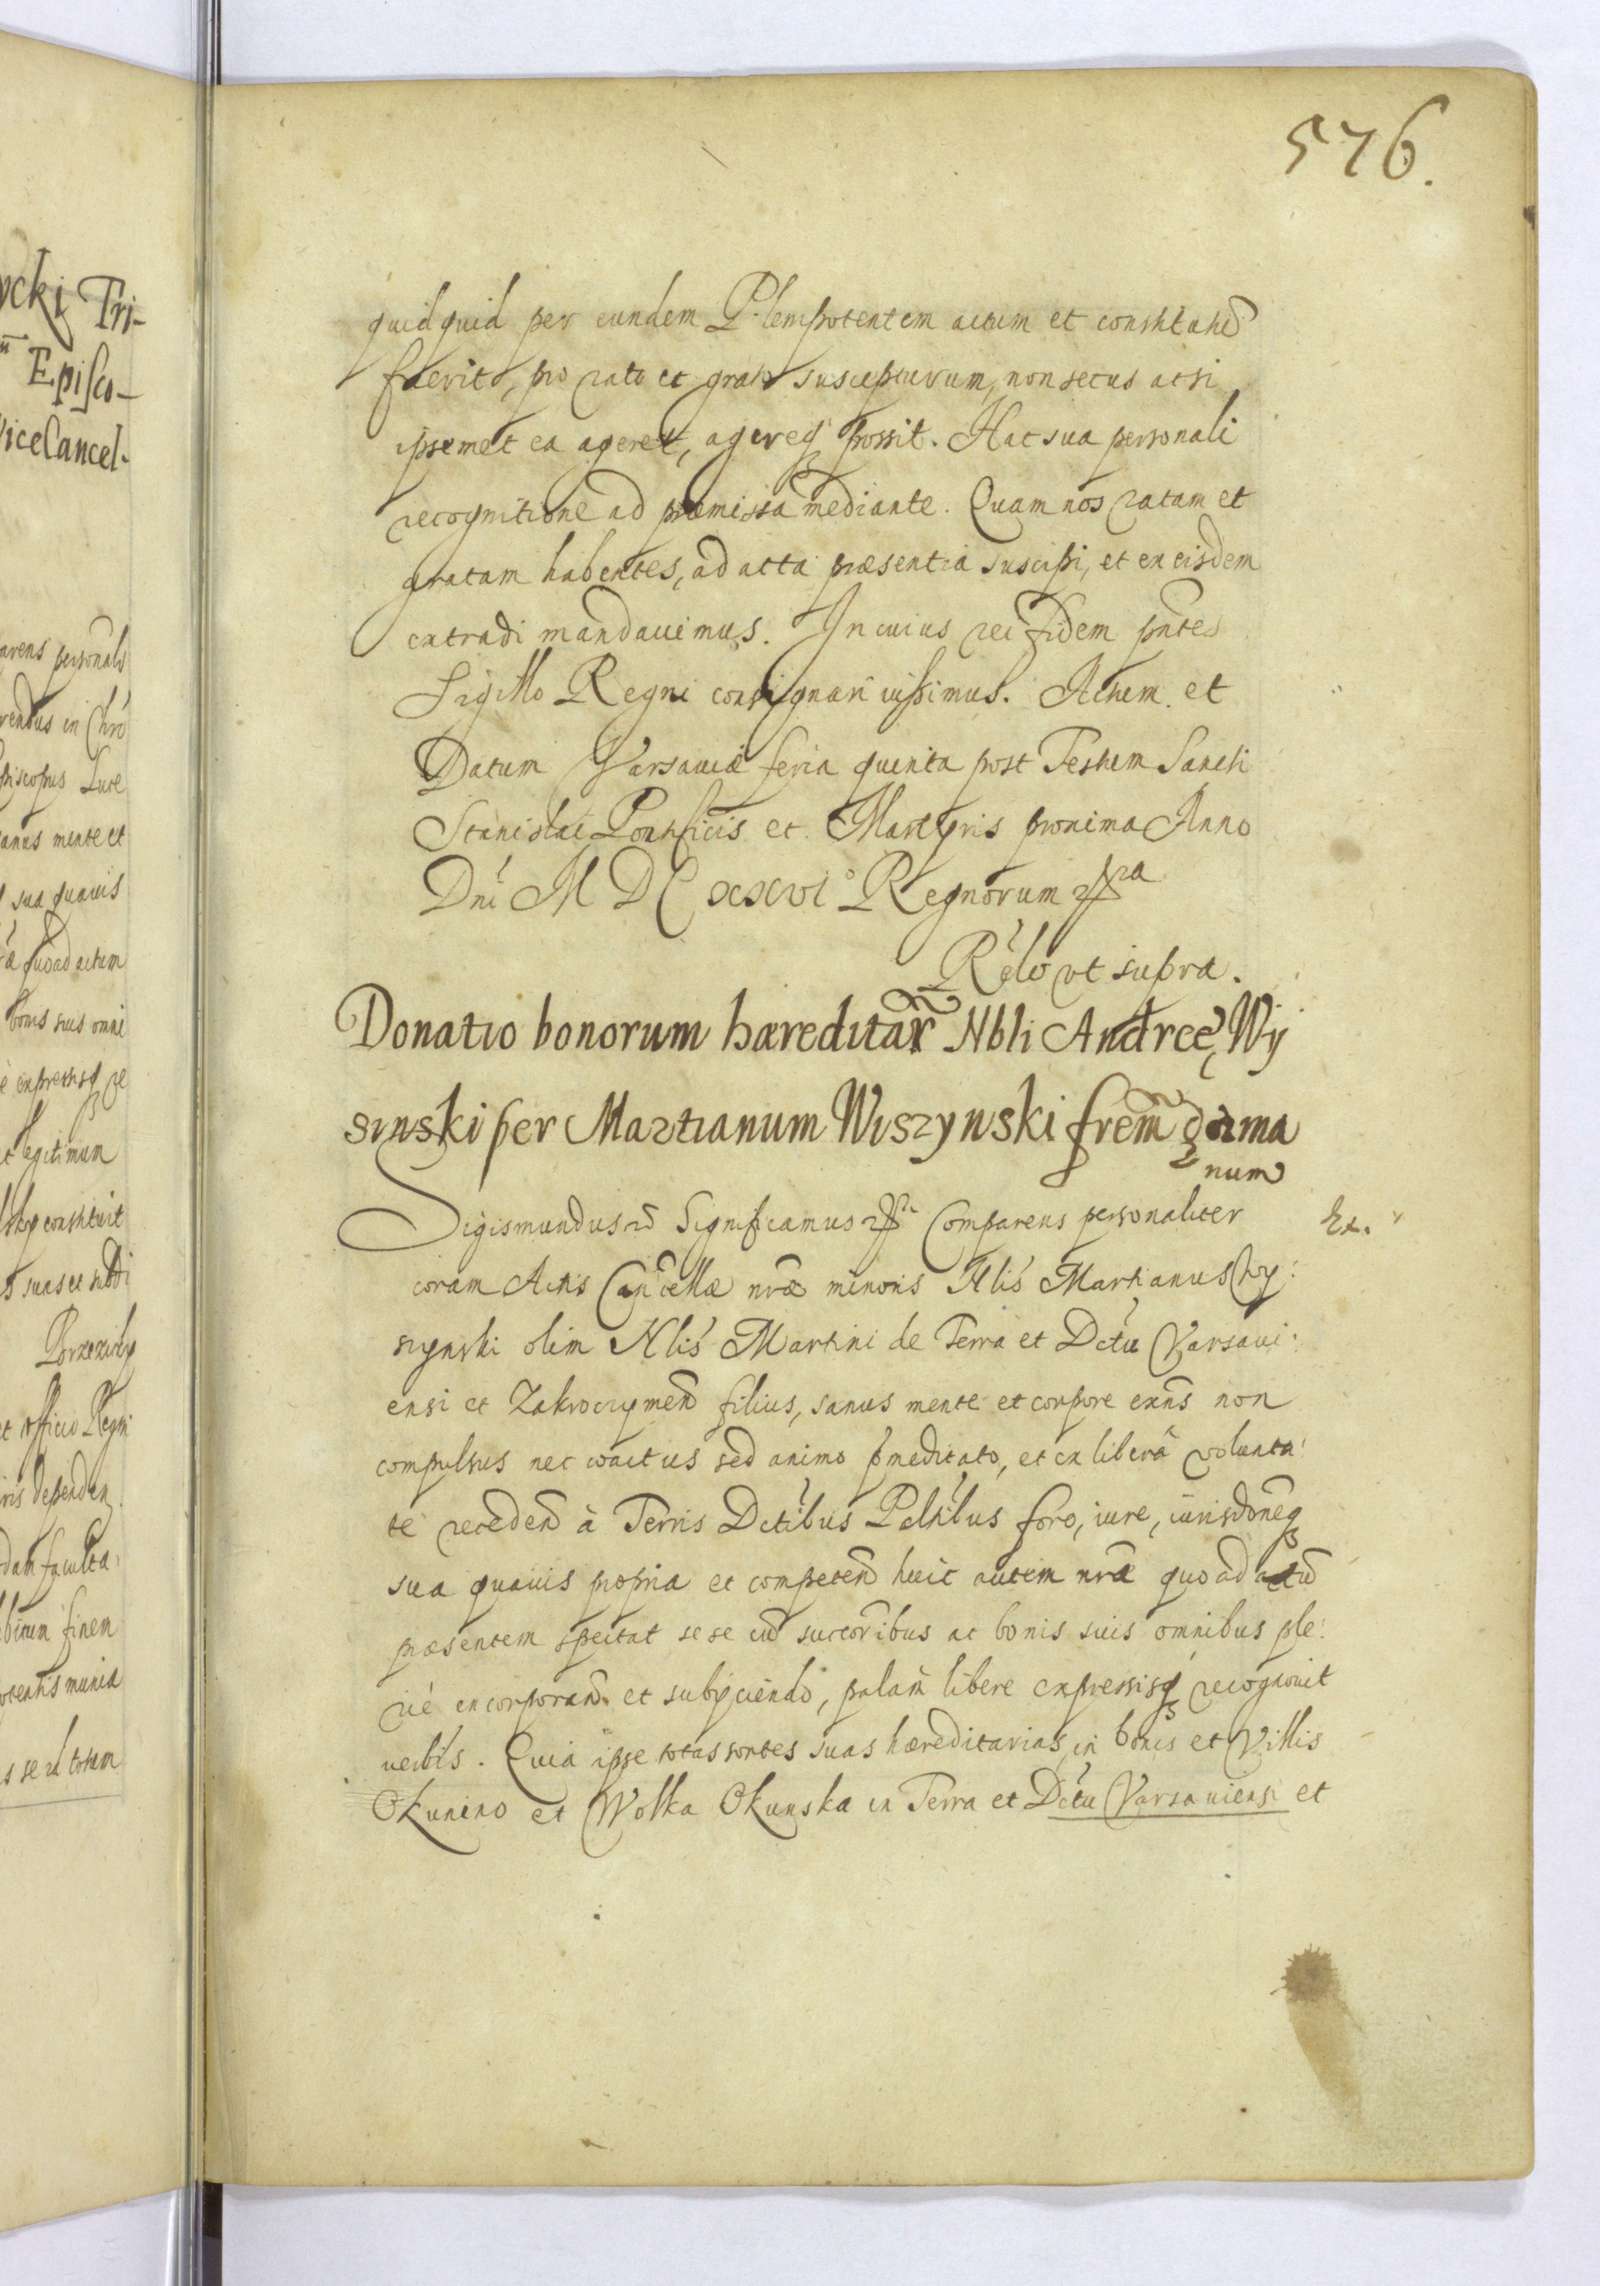 576.
quidquid per eundem Plenipotentem actum et constitutũ
fuerit, pro rato et grato suscepturum, non secus ac si
ipsemet ea ageret, agereq possit. Hac sua personali
recognitione ad præmissa mediante. Quam nos ratam et
gratam habentes, ad acta præsentia suscipi, et ex eisdem
extradi mandauimus. In cuius rei fidem pñtes
Sigillo Regni consignari iussimus. Actum et
Datum Varsauiæ feria quinta post Festum Sancti
Stanislai Pontificis et Martyris proxima Anno
Dni M D C xxvi° Regnorum
Relõ vt supra.
Donatio bonorum hæreditar̃ Nbli Andreę Wy
sinski per Martianum Wiszynski frem̃ germa
num
Sigismundus Significamus Comparens personaliter
Ex.
coram Actis Cancellæ nr̃æ minoris Nlis Martianus Wy:
szynski olim Nlis Martini de Terra et Dctu Varsaui:
ensi et Zakroczymeñ filius, sanus mente et corpore exñs non
compulsus nec coactus sed animo p̃meditato, et ex liberâ volunta:
te recedeñ à Terris Dctibus Peltibus foro, iure, iurisdõneq
sua quauis propria et competeñ huic autem nr̃æ quo ad actũ
præsentem spectat se se cũ succoribus ac bonis suis omnibus ple:
rie incorporañ et subijciendo, palam libere expressisq recognouit
verbis. Quia ipse totas sortes suas hæreditarias in bonis et Villis
Okunino et Wolka Okunska in Terra et Dctu Varsauiensi et
ycki Tri-
Episco-
ViceCancel-
arens personalis
rendus in Chrõ
piscopus Luce
anus mente et
sua quauis
quo ad actum
bonis suis omni
expressisq re
legitimum
constituit
suas et
et officio Regni
ris dependen
dam faculta:
bitum finem
otentis munia